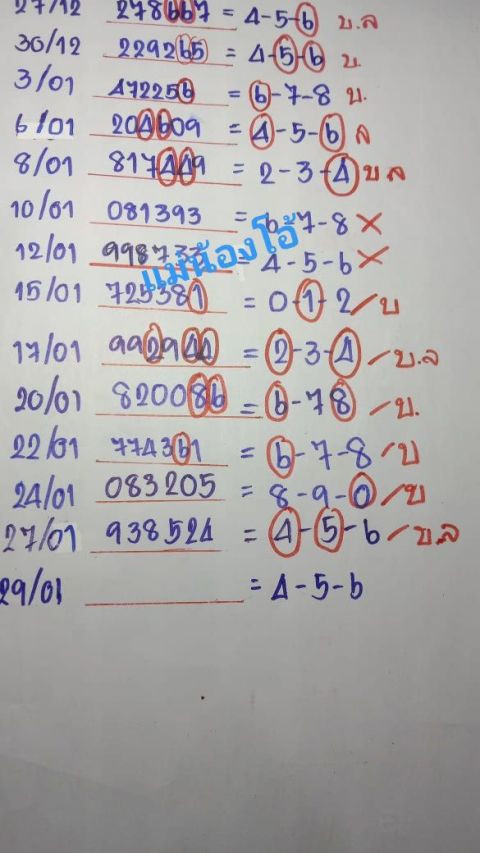 27/12 278667 = 4-5-6 บ.ล
30/12 229265 = 4-5-6 บ.
3/01 472256 = 6-7-8 บ.
6/01 204609 = 4-5-6 ล
8/01 817449 = 2-3-4 บล
10/01 081393 = 6-7-8 X
12/01 = 4-5-6 X
แม่น้องโอ๋
15/01 725381 = 0-1-2 / บ
17/01 992944 = 2-3-4 / บ.ล
20/01 820086 = 6-7-8 / บ.
22/01 774361 = 6-7-8 / บ
24/01 083205 = 8-9-0 / บ
27/01 938524 = 4-5-6 / บ.ล
29/01 = 4-5-6